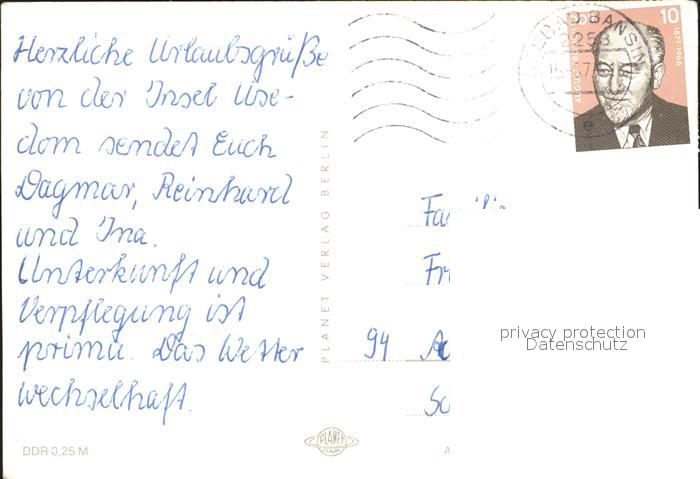 Herzliche Urlaubsgrüße
von der Insel Use-
dom sendet Euch
Dagmar, Reinhard
und Ina.
Unterkunft und
Verpflegung ist
prima. Das Wetter
wechselhaft.
DDR 0,25 M
PLANET VERLAG BERLIN
PLANET
BANSIN
10
1877-1966
Fa
Fr
94
privacy protection
Datenschutz
A